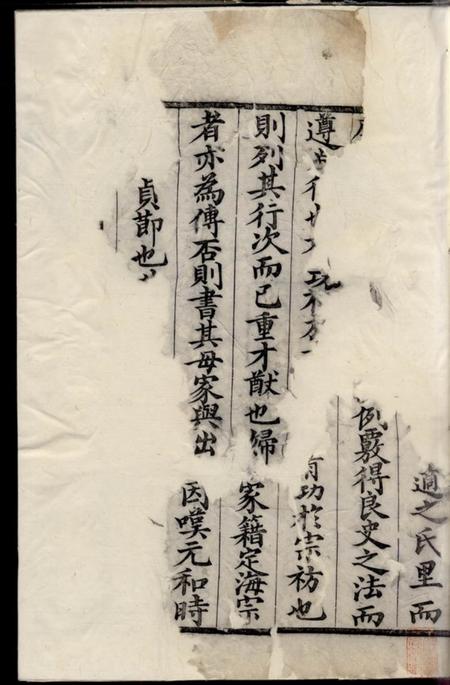 適之氏里而
例覈得良史之法而
遵
有功於宗祊也
則列其行次而已重才猷也婦
家籍定海宗
者亦為傳否則書其母家與出
因嘆元和時
貞節也